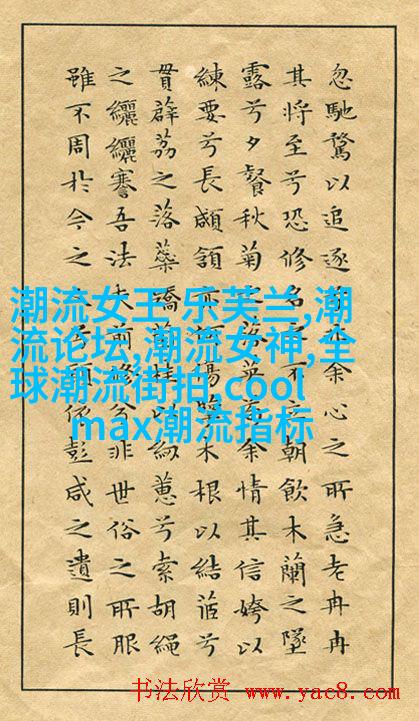 忽馳騖以追逐余心之所急老冉冉
其將至兮恐修名不立朝飲木蘭之墜
露兮夕餐秋菊落英余情其信姱以
練要兮長顑頷亦傷木根以結茝兮
貫薜荔之落蕊矯桂以紉蕙兮索胡繩
之纚纚謇吾法夫前修兮非世俗之所服
雖不周於今之願依彭咸之遺則長
潮流女王,乐芙兰,潮
流论坛,潮流女神,全
球潮流街拍,cool
max潮流指标
书法欣赏 www.yac8.com